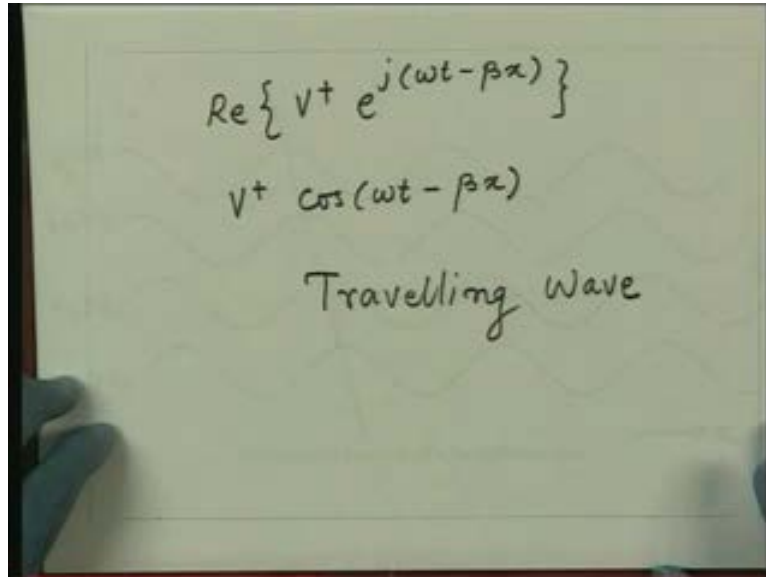 Re { V⁺ e^{j(ωt - βx)} }
V⁺ cos(ωt - βx)
Travelling Wave